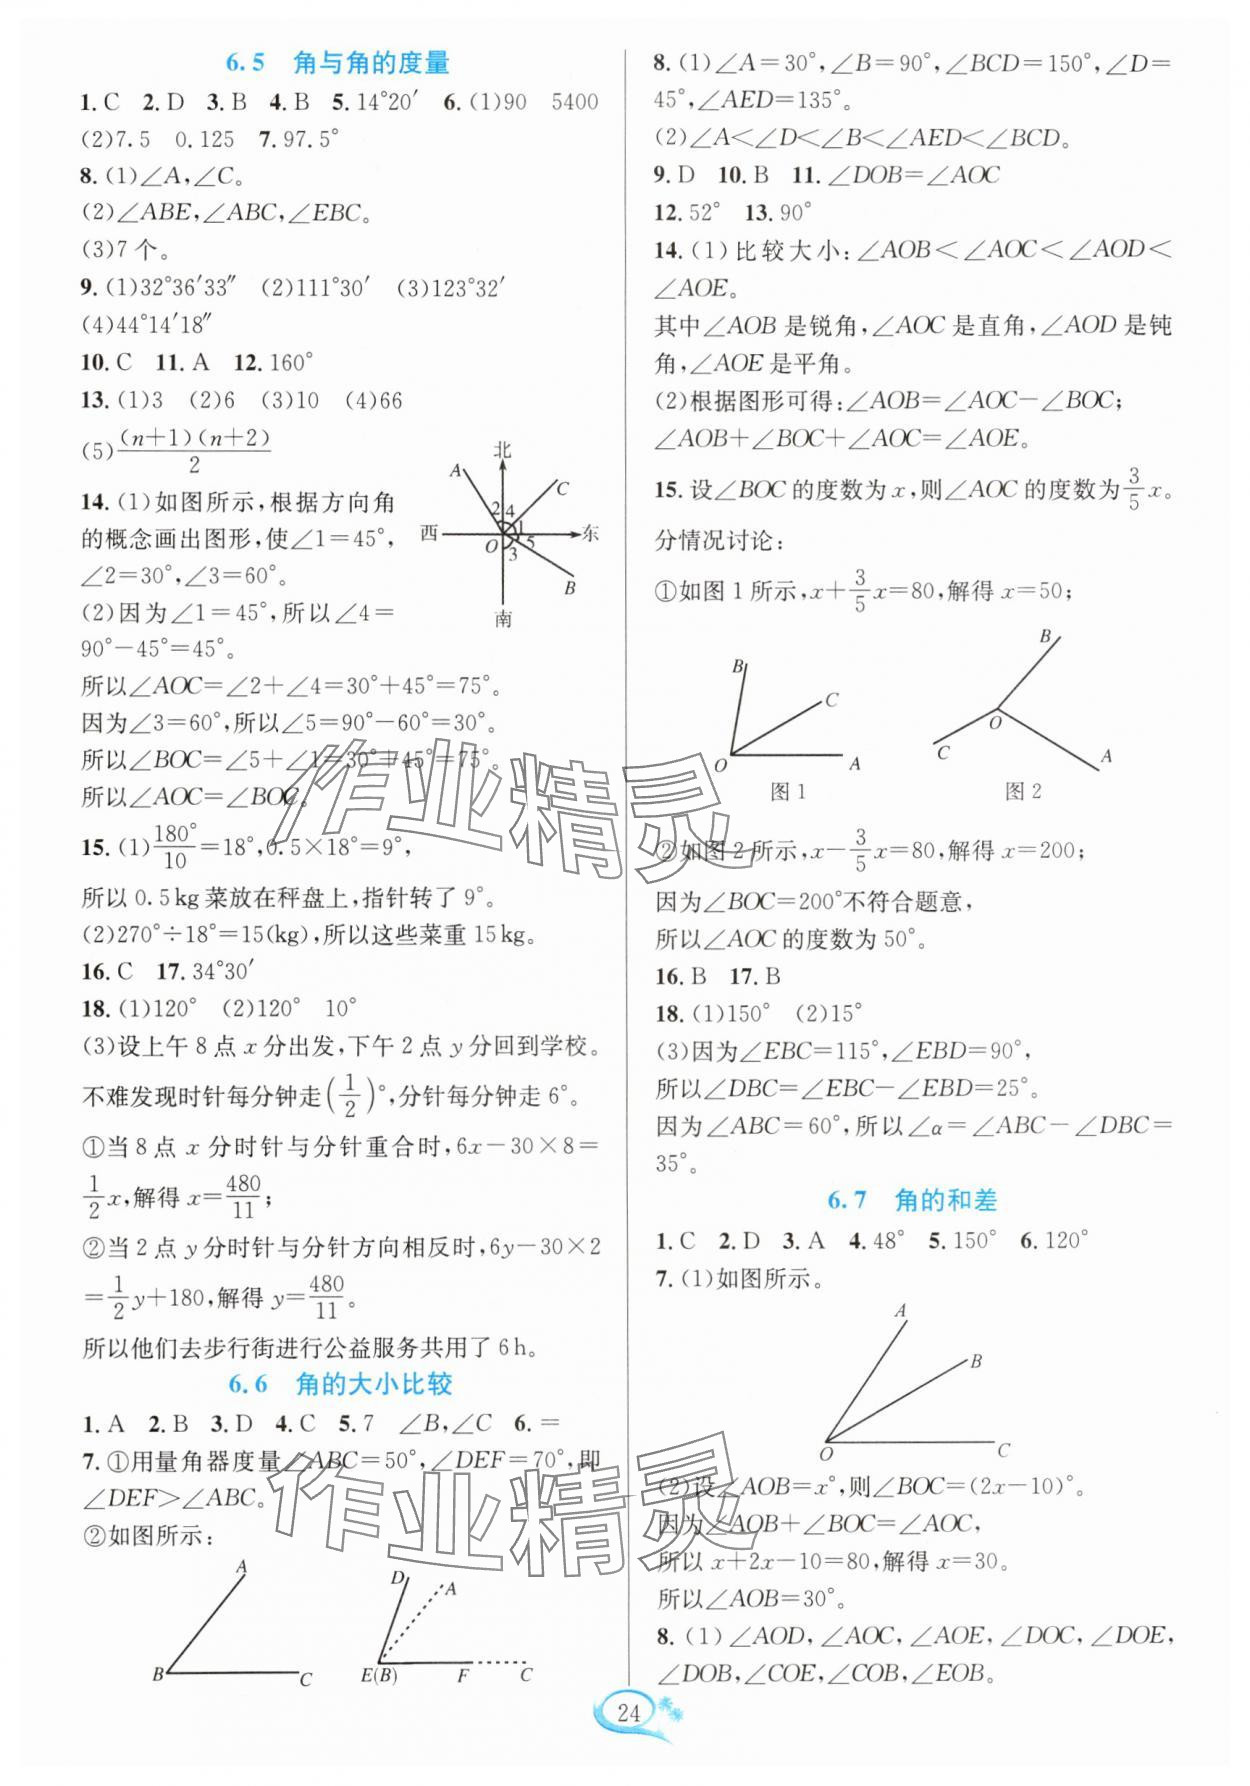 6.5 角与角的度量
1.C 2.D 3.B 4.B 5.14°20′ 6.(1)90 5400
(2)7.5 0.125 7.97.5°
8.(1)∠A,∠C。
(2)∠ABE,∠ABC,∠EBC。
(3)7个。
9.(1)32°36′33″ (2)111°30′ (3)123°32′
(4)44°14′18″
10.C 11.A 12.160°
13.(1)3 (2)6 (3)10 (4)66
(5)(n+1)(n+2)/2
14.(1)如图所示,根据方向角
的概念画出图形,使∠1=45°,
∠2=30°,∠3=60°。
(2)因为∠1=45°,所以∠4=
90°-45°=45°。
北
A
C
2
4
1
西
东
O
3
5
B
南
所以∠AOC=∠2+∠4=30°+45°=75°。
因为∠3=60°,所以∠5=90°-60°=30°。
所以∠BOC=∠5+∠1=30°+45°=75°。
所以∠AOC=∠BOC。
15.(1)180°/10=18°,0.5×18°=9°,
所以0.5kg菜放在秤盘上,指针转了9°。
(2)270°÷18°=15(kg),所以这些菜重15kg。
16.C 17.34°30′
18.(1)120° (2)120° 10°
(3)设上午8点x分出发,下午2点y分回到学校。
不难发现时针每分钟走(1/2)°,分针每分钟走6°。
①当8点x分时针与分针重合时,6x-30×8=
1/2x,解得x=480/11;
②当2点y分时针与分针方向相反时,6y-30×2
=1/2y+180,解得y=480/11。
所以他们去步行街进行公益服务共用了6h。
6.6 角的大小比较
1.A 2.B 3.D 4.C 5.7 ∠B,∠C 6.=
7.①用量角器度量∠ABC=50°,∠DEF=70°,即
∠DEF>∠ABC。
②如图所示:
A
B
C
D
A
E(B)
F
C
8.(1)∠A=30°,∠B=90°,∠BCD=150°,∠D=
45°,∠AED=135°。
(2)∠A<∠D<∠B<∠AED<∠BCD。
9.D 10.B 11.∠DOB=∠AOC
12.52° 13.90°
14.(1)比较大小:∠AOB<∠AOC<∠AOD<
∠AOE。
其中∠AOB是锐角,∠AOC是直角,∠AOD是钝
角,∠AOE是平角。
(2)根据图形可得:∠AOB=∠AOC-∠BOC;
∠AOB+∠BOC+∠AOC=∠AOE。
15.设∠BOC的度数为x,则∠AOC的度数为3/5x。
分情况讨论:
①如图1所示,x+3/5x=80,解得x=50;
B
C
O
A
图1
B
O
C
A
图2
②如图2所示,x-3/5x=80,解得x=200;
因为∠BOC=200°不符合题意,
所以∠AOC的度数为50°。
16.B 17.B
18.(1)150° (2)15°
(3)因为∠EBC=115°,∠EBD=90°,
所以∠DBC=∠EBC-∠EBD=25°。
因为∠ABC=60°,所以∠α=∠ABC-∠DBC=
35°。
6.7 角的和差
1.C 2.D 3.A 4.48° 5.150° 6.120°
7.(1)如图所示。
A
B
O
C
(2)设∠AOB=x°,则∠BOC=(2x-10)°。
因为∠AOB+∠BOC=∠AOC,
所以x+2x-10=80,解得x=30。
所以∠AOB=30°。
8.(1)∠AOD,∠AOC,∠AOE,∠DOC,∠DOE,
∠DOB,∠COE,∠COB,∠EOB。
24
作业精灵
作业精灵